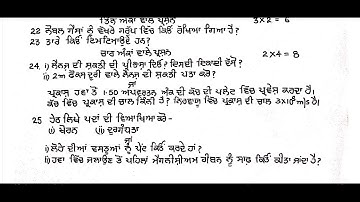 ਤਿੰਨ ਅੰਕਾਂ ਵਾਲੇ ਪ੍ਰਸ਼ਨ 3×2 = 6
22 ਨੋਬਲ ਗੈਸਾਂ ਨੂੰ ਵੱਖਰੇ ਗਰੁੱਪ ਵਿੱਚ ਕਿਉਂ ਰੱਖਿਆ ਗਿਆ ਹੈ?
23 ਤਾਰੇ ਕਿਉਂ ਟਿਮਟਿਮਾਉਂਦੇ ਹਨ?
ਚਾਰ ਅੰਕਾਂ ਵਾਲੇ ਪ੍ਰਸ਼ਨ 2×4 = 8
24. i) ਲੈਨਜ਼ ਦੀ ਸ਼ਕਤੀ ਦੀ ਪ੍ਰੀਭਾਸ਼ਾ ਦਿਓ? ਇਸਦੀ ਇਕਾਈ ਦੱਸੋ?
ii) 2m ਫੋਕਸ ਦੂਰੀ ਵਾਲੇ ਲੈਨਜ਼ ਦੀ ਸ਼ਕਤੀ ਪਤਾ ਕਰੋ?
ਜਾਂ
ਪ੍ਰਕਾਸ਼ ਹਵਾ ਤੋਂ 1.50 ਅਪਵਰਤਨ ਅੰਕ ਦੀ ਕੱਚ ਦੀ ਪਲੇਟ ਵਿੱਚ ਪ੍ਰਵੇਸ਼ ਕਰਦਾ ਹੈ।
ਕੱਚ ਵਿੱਚ ਪ੍ਰਕਾਸ਼ ਦੀ ਚਾਲ ਕਿੰਨੀ ਹੈ? ਨਿਰਵਾਯੂ ਵਿੱਚ ਪ੍ਰਕਾਸ਼ ਦੀ ਚਾਲ 3×10⁸m/s ਹੈ।
25 ਹੇਠ ਲਿਖੇ ਪਦਾਂ ਦੀ ਵਿਆਖਿਆ ਕਰੋ-
(i) ਖੋਰਨ (ii) ਦੁਰਗੰਧਤਾ
ਜਾਂ
i) ਲੋਹੇ ਦੀਆਂ ਵਸਤੂਆਂ ਨੂੰ ਪੇਂਟ ਕਿਉਂ ਕਰਦੇ ਹਾਂ?
ii) ਹਵਾ ਵਿੱਚ ਜਲਾਉਣ ਤੋਂ ਪਹਿਲਾਂ ਮੈਗਨੀਸ਼ੀਅਮ ਰੀਬਨ ਨੂੰ ਸਾਫ਼ ਕਿਉਂ ਕੀਤਾ ਜਾਂਦਾ ਹੈ?